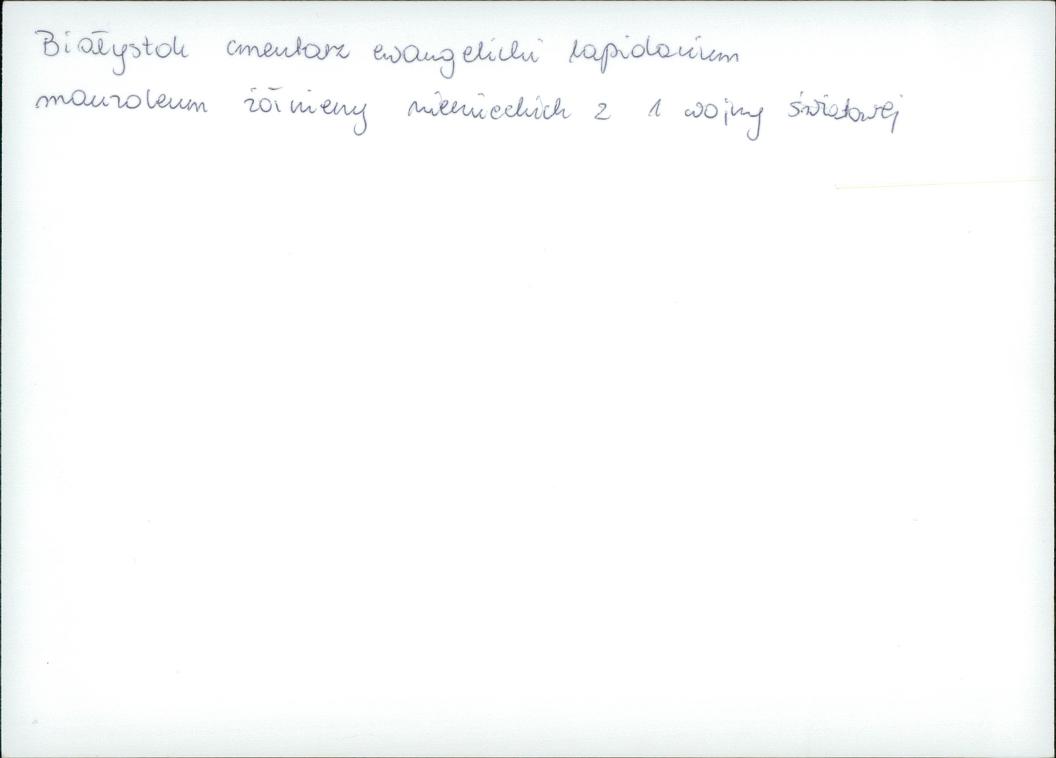 Białystok cmentarz ewangelicki lapidarium
mauzoleum żołnierzy niemieckich z 1 wojny światowej